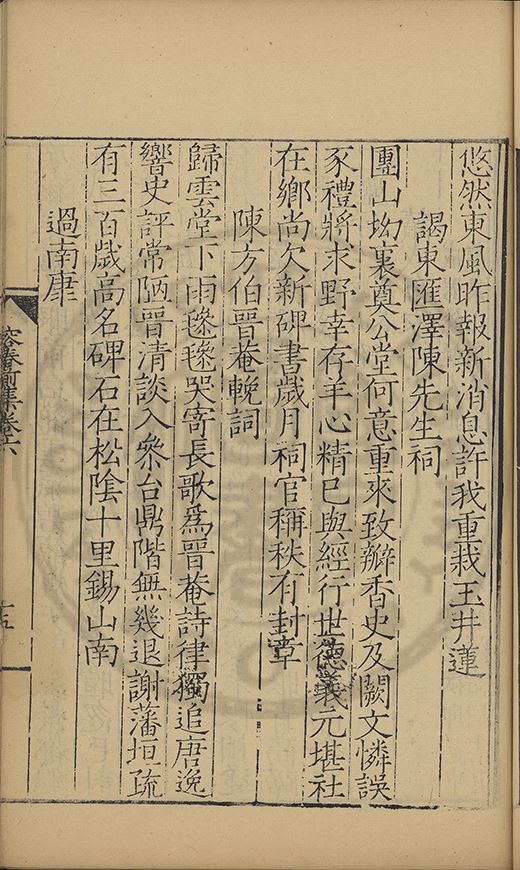 悠然東風昨報新消息許我重栽玉井蓮
謁東匯澤陳先生祠
團山坳裏奠公堂何意重來致瓣香史及闕文憐誤
豕禮將求野幸存羊心精巳與經行世德義元堪社
在鄉尚欠新碑書歲月祠官稱秩有封章
陳方伯晉菴輓詞
歸雲堂下雨毿毿哭寄長歌爲晉菴詩律獨追唐逸
響史評常陋晉清談入叅台鼎階無幾退謝藩垣疏
有三百歲高名碑石在松陰十里錫山南
過南康
容春前集卷六
十五